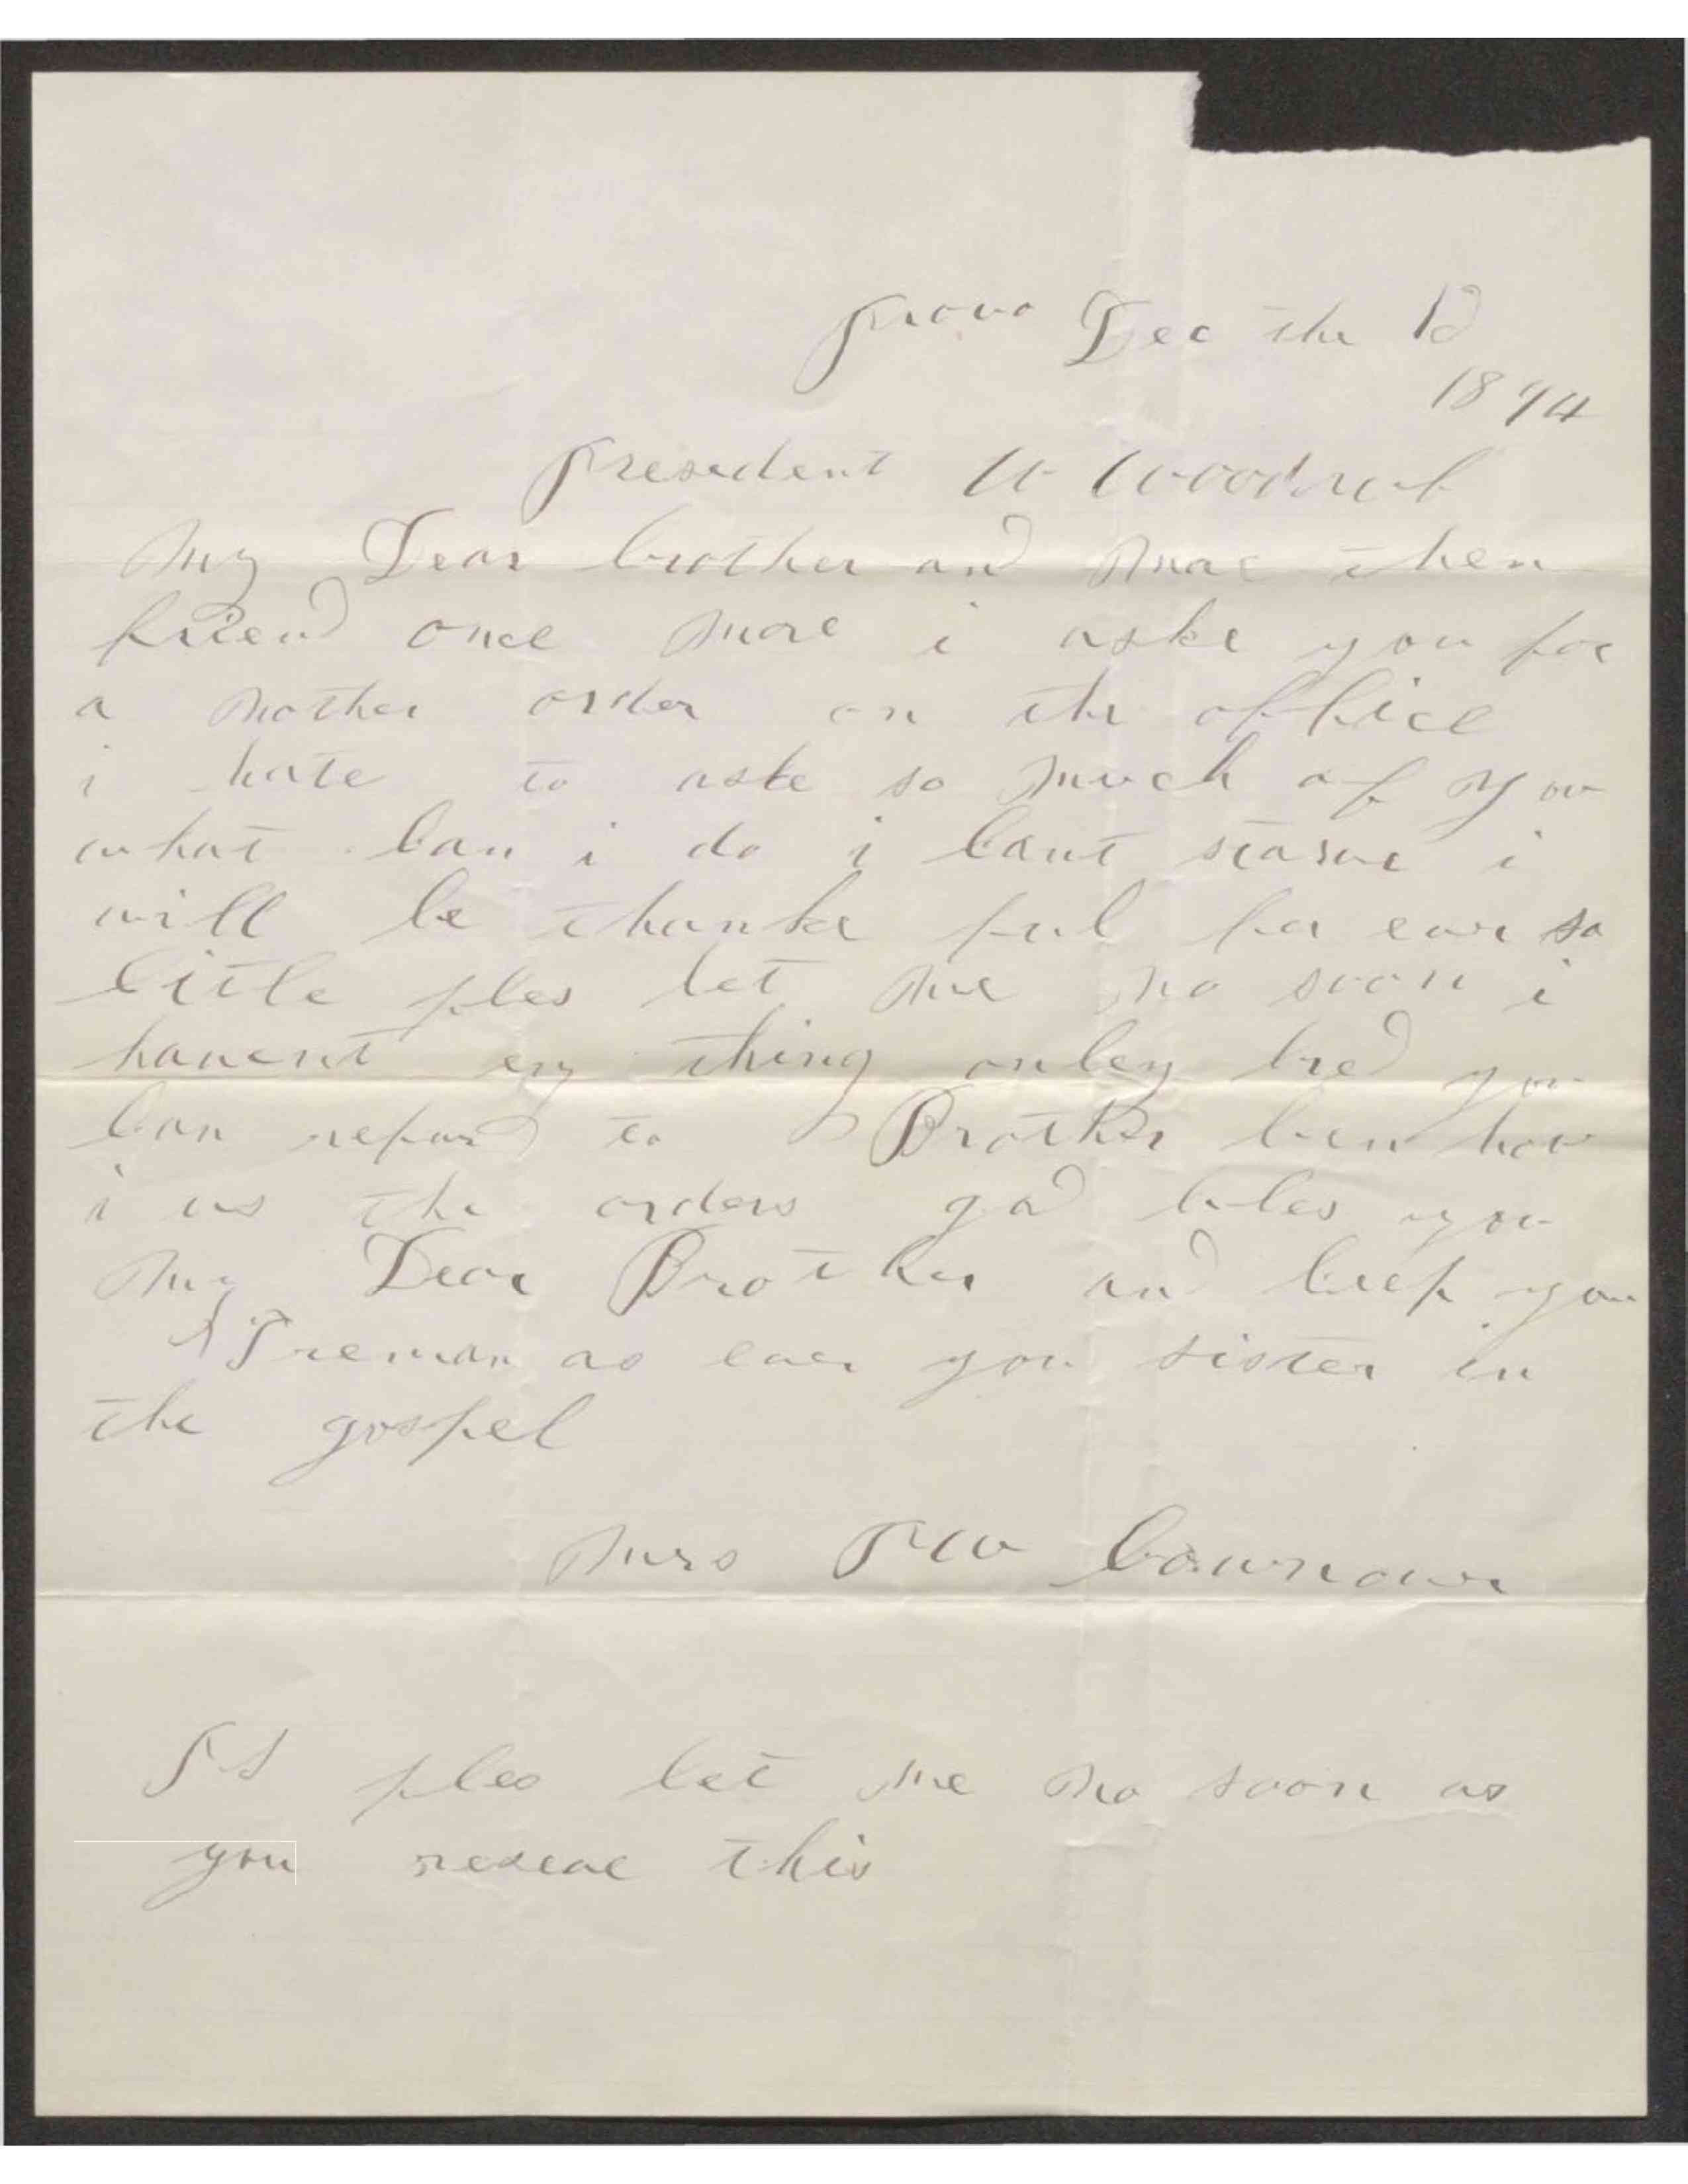 provo Dec the 10
1894
presedent W Woodruf
My Dear brother and more then
friend once more i aske you for
a nother order on the office
i hate to aske so much of you
what Can i do i Cant starve i
will be thanke ful for ever so
little ples let me no soon i
havent eny thing onley bred you
Can refard to Brother ben how
i us the orders god bles you
my Dear Brother and keep you
I Preman as ever you sister in
the gospel
Mrs
PS ples let me no soon as
you reseve this